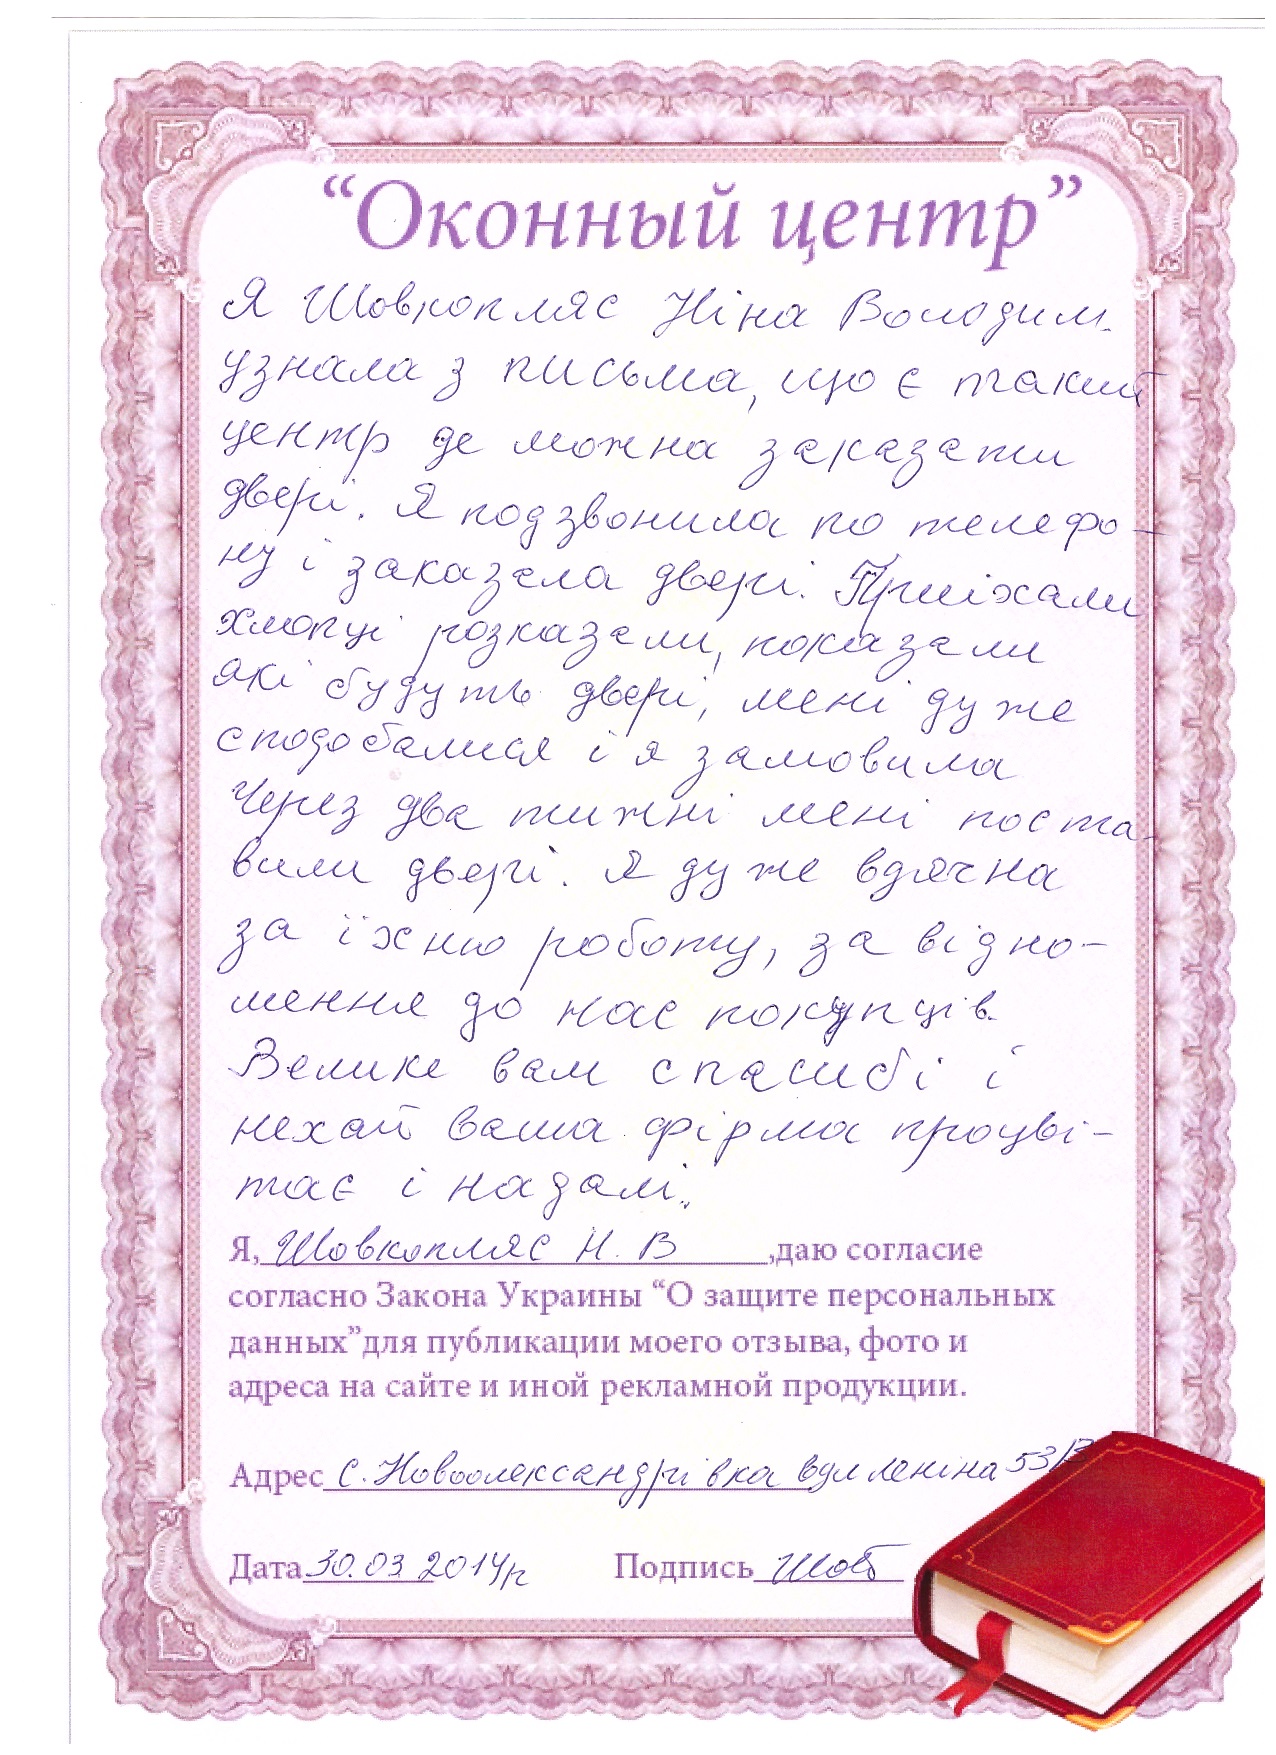 “Оконный центр”
Я Шовкопляс Ніна Володим.
узнала з письма, що є такий
центр де можна заказати
двері. Я подзвонила по телефо-
ну і заказала двері. Приїхали
хлопці розказали, показали
які будуть двері, мені дуже
сподобалися і я замовила
Через два тижні мені поста-
вили двері. Я дуже вдячна
за їхню роботу, за відно-
шення до нас покупців.
Велике вам спасибі і
нехай ваша фірма процві-
тає і надалі.
Я, Шовкопляс Н. В ,даю согласие
согласно Закона Украины “О защите персональных
данных”для публикации моего отзыва, фото и
адреса на сайте и иной рекламной продукции.
Адрес с. Новоолександрівка вул леніна 53/
Дата 30.03 2014р Подпись Шов